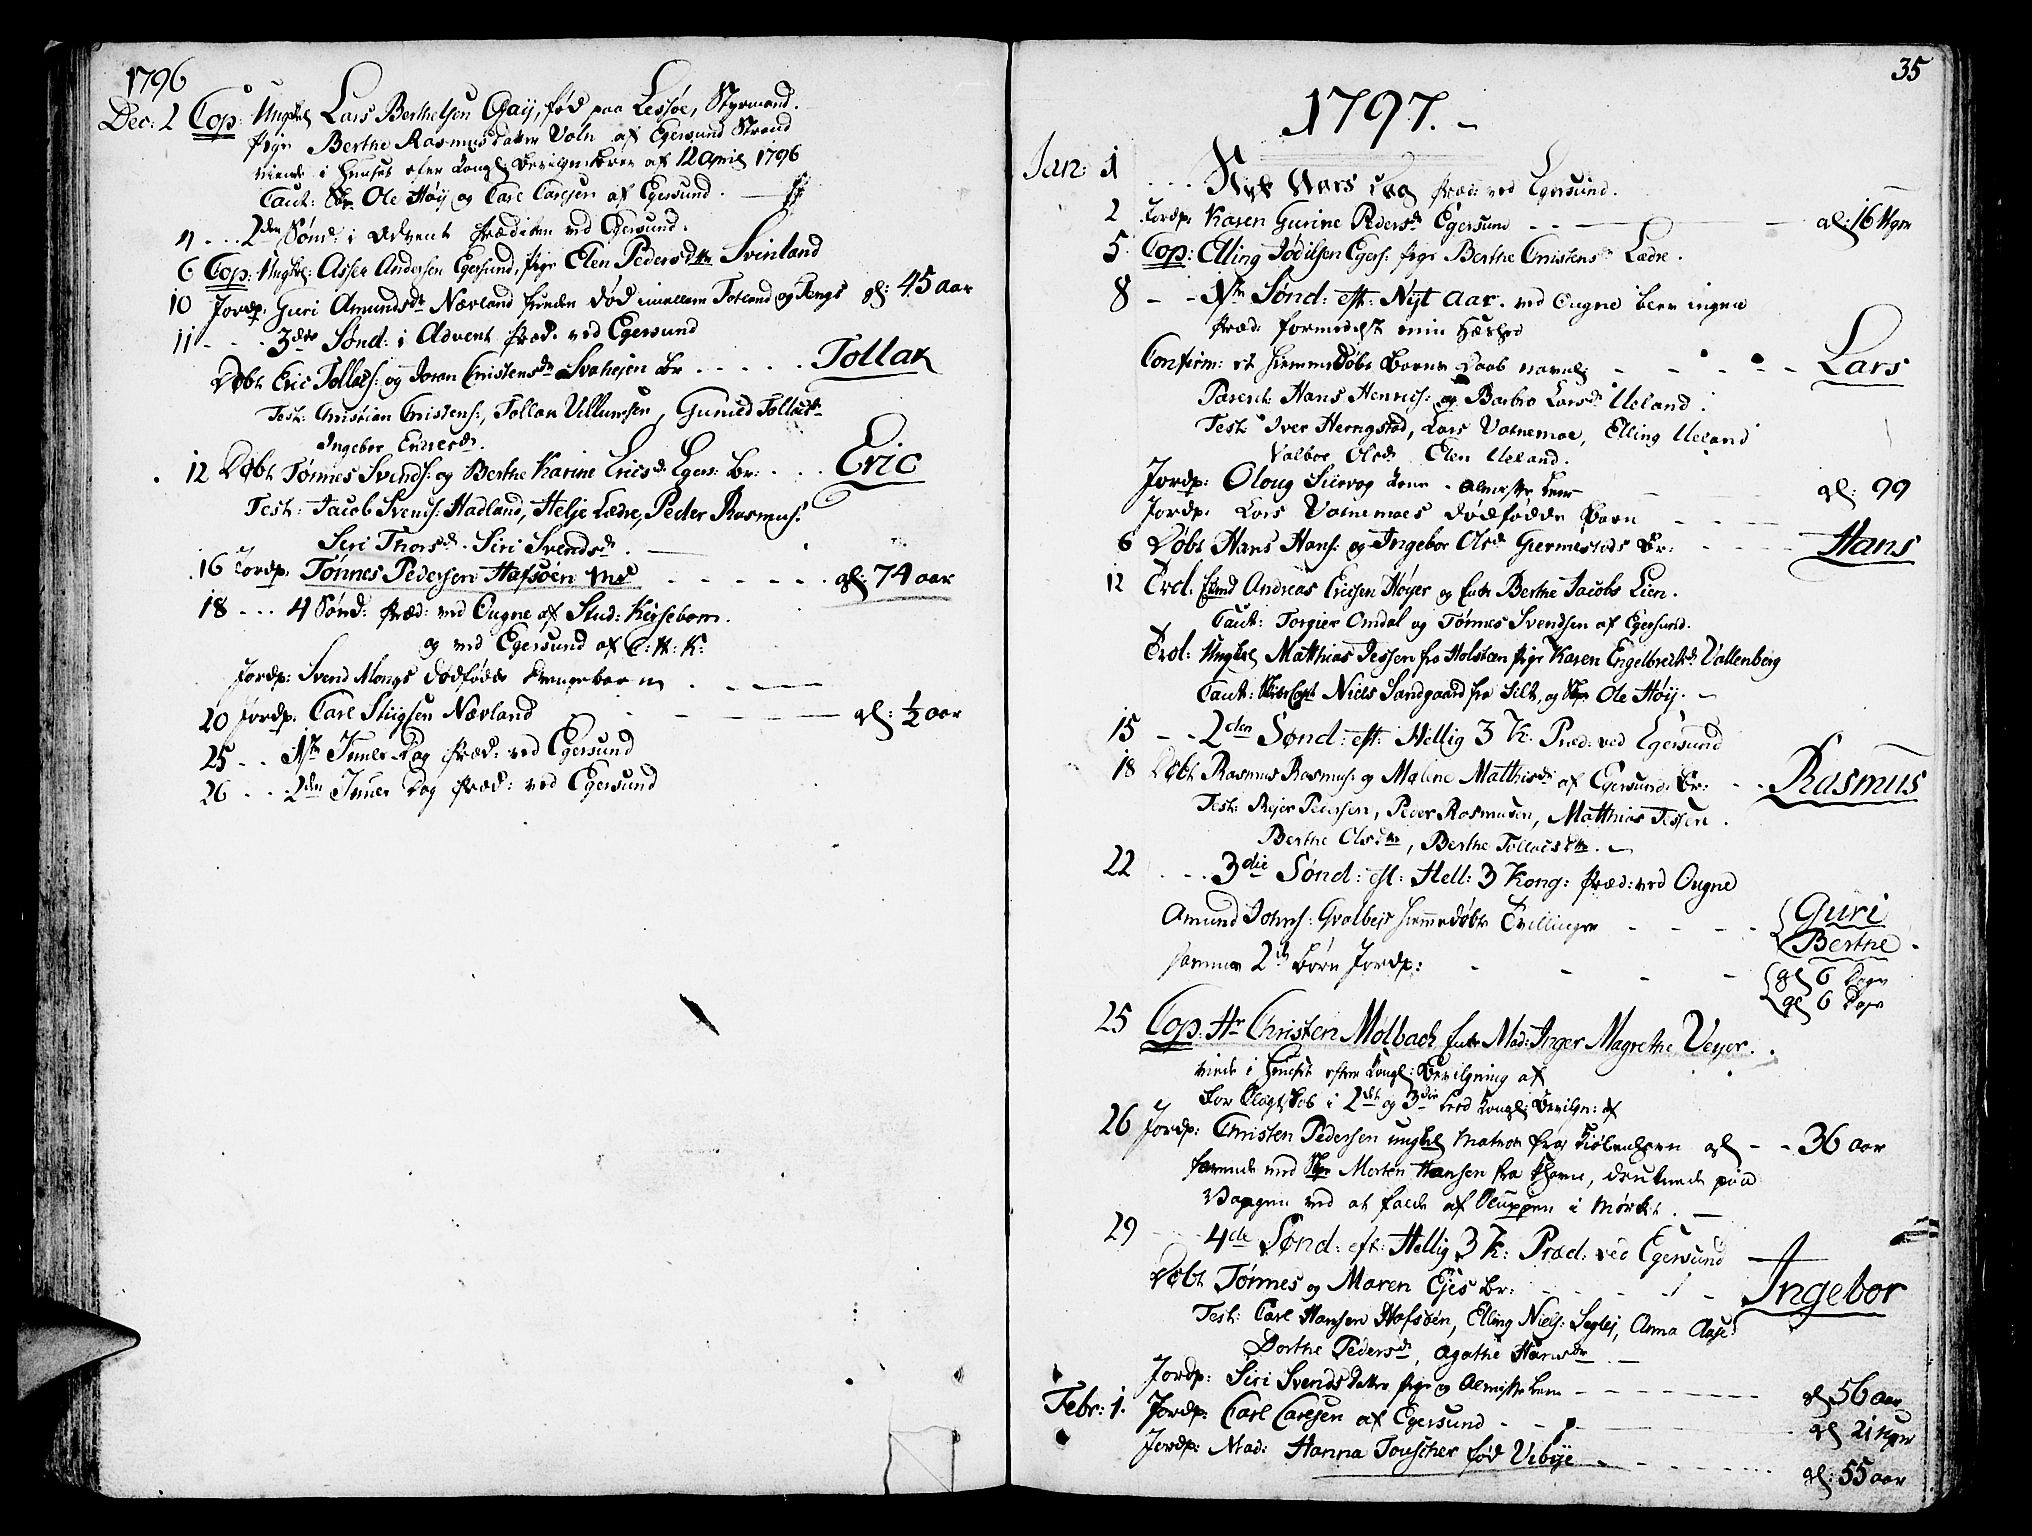 1796
Dec: 2 Cop: Ungkl Lars Berthelsen Gaij, fød paa Lessøe, Styrmand.
Pige Berthe Rasmusdatter af Egersund Strand
viede i Huuset efter Kongl: Bevilgn: Brev af 12 April 1796
Caut: Skr Ole Høij og Carl Carlsen af Egersund.
4 ... 2den Sønd: i Advent Prædiken ved Egersund.
6 Cop: Ungkl: Asser Andersen Egersund, Pige Elen Pedersdtr Svinland
10 Jordp: Guri Amundsdr Nævland funden død imellem Totland og Tengs gl: 45 aar
11 - - - 3die Sønd: i Advent Præd: ved Egersund
Døbt Eric Tollacs: og Joran Cristensdr Svahejen Br ..... Tollak
Test: Christian Cristens:, Tollan Villumsen, Gunild Tollacsdr
Ingebor Enersdr.
12 Døbt Tønnes Svends: og Berthe Karine Ericsdr Egers: Br: ... Eric
Test: Jacob Svends: Hadland, Helje Lædre, Peder Rasmus:
Siri Thorsdr. Siri Svendsdr.
16 Jordp: Tønnes Pedersen Hafsøen - - - - - - gl: 74 aar
18 ... 4 Sønd: Præd: ved Ougne af Stud: Kirsebom.
og ved Egersund af C: H: K:
Jordp: Svend Mongs dødfødde Drengebarn
20 Jordp: Carl Stiigsen Nævland - - - - gl: 1/2 aar
25 - . 1ste Juule Dag Præd: ved Egersund
26 - . 2den Juule Dag Præd: ved Egersund
35
1797. -
Jan: 1 ... Nyt Aars Dag Præd: ved Egersund.
2 Jordp: Karen Gurine Pedersdr Egersund - - - gl: 16 Uger
5 Cop: Elling Egers: Pige Berthe Cristensdr Lædre.
8 - - 1ste Sønd: eft: Nyt Aar. ved Ougne blev ingen
Præd: formedelst min Hæshed
Confirm: et hiemmedøbt Barns Daab navnl: - - - - Lars
Parent: Hans Henrich: og Barbro Larsdr Ueland.
Test: Iver Herngstad, Lars Vatnemoe, Elling Ueland
Valbor Olsdr Elen Ueland.
Jordp: Oloug - Almisse Lem - gl: 99
Jordp: Lars Vatnemoes dødfødde Barn - - - -
6 Døbt Hans Hans: og Ingebor Olsdr Giermestads Br: - - - - Hans
12 Trol: Andreas Ericsen Høyer og Enke Berthe Jacobs Lien.
Caut: Torgier Omdal og Tønnes Svendsen af Egersund.
Trol: Ungkl Matthias Jessen fra Holsteen Pige Karen Engelbrectsdr Vallenberg
Caut: Niels Sandgaard fra Silt, og Skr Ole Høij. -
15 - - 2den Sønd: eft: Hellig 3 K: Præd: ved Egersund
18 Døbt Rasmus Rasmus: og Malene Matthisdr af Egersund Br: - - Rasmus
Test: Rejer Pedersen, Peder Rasmussen, Matthias Jessen.
Berthe Olsdtr, Berthe Tollacsdtr. -
22 ... 3die Sønd: eft: Hell: 3 Kong: Præd: ved Ougne
Amund Johns: hiemmedøbte Tvillinger - - - - Guri
Berthe.
samme 2de Børn Jordp: - - - gl 6 Dage
gl 6 Dage
25 Cop: Hr Christen Molbach Enke Mad: Inger Magrethe Veyer..
viede i Huuset efter Kongl: Bevilgning af
For Slagtskab i 2det og 3die Leed Kongl: Bevilgn: af
26 Jordp: Christen Pedersen ungkl Matros fra Kiøbenhavn gl - - 36 aar
farende med Skr Morten Hansen fra Khavn, druknede paa
Vaagen ved at falde af Sluppen i Mørket. -
29 - - - 4de Sønd: eft: Hellig 3 K: Præd: ved Egersund
Døbt Tønnes og Maren Ejes Br: - - - - Ingebor
Test: Carl Hansen Hafsøen, Elling Niels: Seglej, Anna Aase
Dorthe Pedersdr, Agathe Hansdr. -
Jordp: Siri Svends Datter Pige og Almisse Lem - - - - - - gl 56 aar
Febr: 1. Jordp: Carl Carlsen af Egersund - - - gl 21 Uger
Jordp: Mad: Hanna Touscher fød Vibye - - - - gl: 55 aar